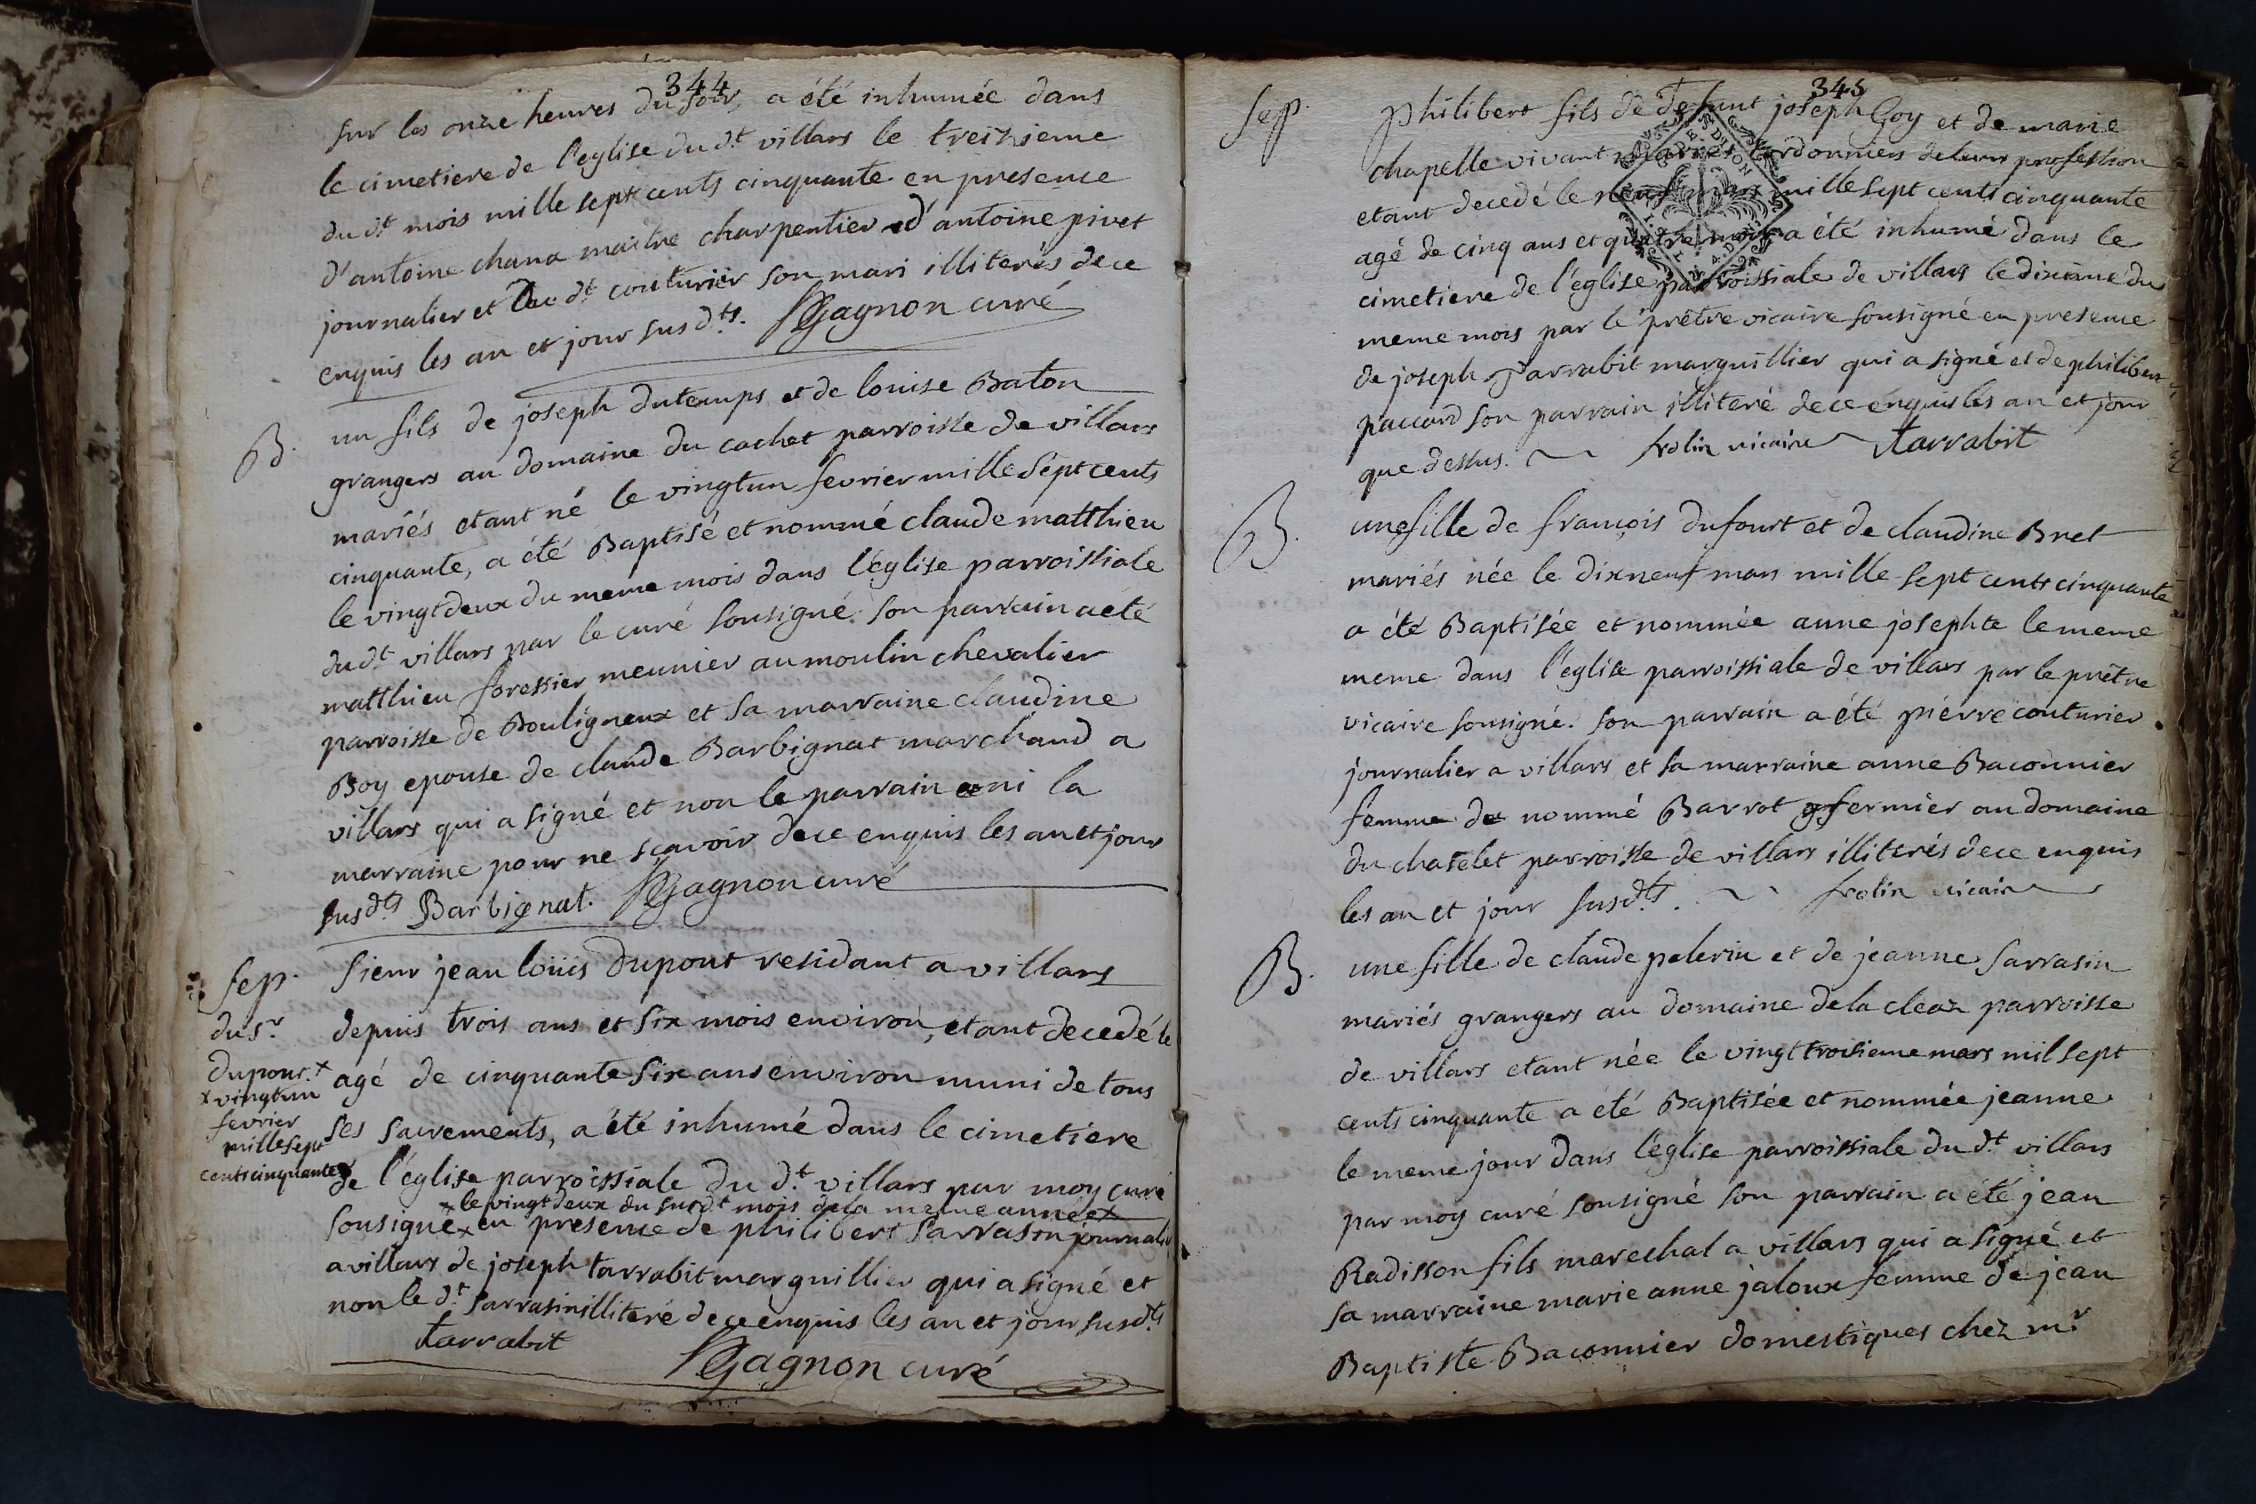 344
sur les onze heures du soir, a été inhumée dans
le cimetiere de l'eglise du d.t villars le treizieme
du d.t mois mille sept cents cinquante en presence
d'antoine chana maitre charpentier d'antoine pivet
journalier et du d.t couturier son mari illiterés de ce
enquis les an et jour susd.ts. Gagnon curé
B. un fils de joseph dutemps et de louise Baton
grangers au domaine du cachet parroisse de villars
mariés etant né le vingtun fevrier mille sept cents
cinquante, a été Baptisé et nommé claude matthieu
le vingtdeux du meme mois dans l'église parroissiale
du d.t villars par le curé sousigné. son parrain a été
matthieu foressier meunier au moulin chevalier
parroisse de Bouligneux et sa marraine claudine
Boy epouse de claude Barbignat marchand a
villars qui a signé et non le parrain ni la
marraine pour ne sçavoir de ce enquis les an et jour
susd.ts Barbignat. Gagnon curé
sep. du s.r dupont. sieur jean loüis Dupont residant a villars
depuis trois ans et six mois environ, etant decedé le
x vingtun fevrier mille sept cents cinquante
agé de cinquante six ans environ muni de tous
ses sacrements, a été inhumé dans le cimetiere
de l'église parroissiale du d.t villars par moy curé
x le vingt deux du susd.t mois de la meme année x
sousigné x en presence de philibert sarrasin journalier
a villars de joseph tarrabit marguillier qui a signé et
non le d.t sarrasin illiteré de ce enquis les an et jour susd.ts
tarrabit Gagnon curé
345
sep. Philibert fils de defunt joseph Goy et de marie
chapelle vivant mariés cordonniers de leurs profession
etant decedé le neuf mars mille sept cents cinquante
agé de cinq ans et quatre mois a été inhumé dans le
cimetiere de l'église parroissiale de villars le dixieme du
meme mois par le prêtre vicaire sousigné en presence
de joseph Tarrabit marguillier qui a signé et de philibert
paccard son parrain illiteré de ce enquis les an et jour
que dessus. frolin vicaire tarrabit
B. une fille de françois dufourt et de claudine Bret
mariés née le dixneuf mars mille sept cents cinquante
a été Baptisée et nommée anne josephte le meme
meme dans l'église parroissiale de villars par le prêtre
vicaire sousigné. son parrain a été pierre couturier
journalier a villars et sa marraine anne Baconnier
femme de nommé Barrot fermier au domaine
du chatelet parroisse de villars illiterés de ce enquis
les an et jour susd.ts. frolin vicaire
B. une fille de claude pelerin et de jeanne sarrasin
mariés grangers au domaine de la cleaz parroisse
de villars etant née le vingt troisieme mars mil sept
cents cinquante a été Baptisée et nommée jeanne
le meme jour dans l'église parroissiale du d.t villars
par moy curé sousigné son parrain a été jean
Radisson fils marechal a villars qui a signé et
sa marraine marie anne jaloux femme de jean
Baptiste Baconnier domestiques chez m.r